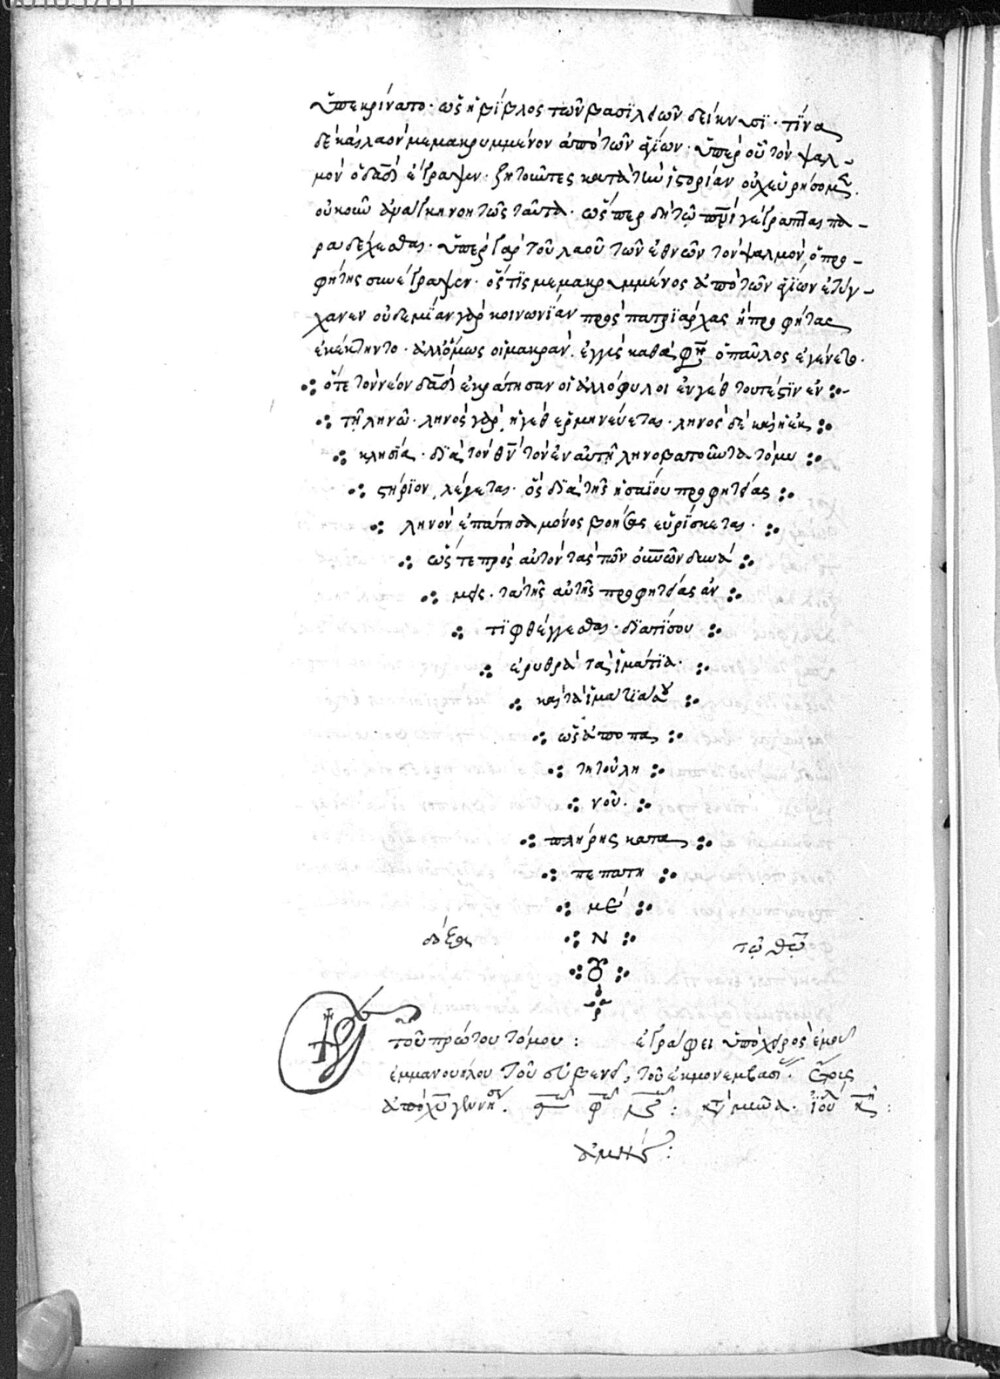 ὑπεκρίνατο· ὡς ἡ βίβλος τῶν βασιλειῶν δείκνυσϊ· τίνα
δὲ καὶ λαὸν μεμακρυμμένον ἀπὸ τῶν ἁγίων· ὑπὲρ οὗ τὸν ψαλ-
μὸν ὁ δᾱδ ἔγραψεν· ζητοῦντες κατὰ τὴν ἱστορίαν οὐχ εὑρήσομεν.
οὐκοῦν ἀναγκη νοητῶς ταῦτα· ὥσπερ δὴ τῷ πρϊ γέγραπται πα-
ραδέχεσθαι· ὑπὲρ γὰρ τοῦ λαοῦ τῶν ἐθνῶν τὸν ψαλμὸν, ὁ προ-
φήτης συνέγραψεν· ὅστϊς μεμακρυμμένος ἀπὸ τῶν ἁγίων ἐτύγ-
χανεν οὐδεμίαν γὰρ κοινωνίαν πρὸς πατριάρχας ἢ προφήτας
ἐκέκτηντο· ἀλλ' ὅμως οἱ μακρὰν. ἐγγὺς καθά φη ὁ παῦλος ἐγένετο.
ὅτε τὸν νέον δᾱδ ἐκράτησαν οἱ ἀλλόφυλοι ἐν γὲθ τουτέστϊν ἐν
τῇ ληνῶ· ληνὸς γὰρ, ἡ γὲθ ἑρμηνεύεται· ληνὸς δὲ καὶ ἡ ἐκ
κλησία· δϊὰ τὸν θν τὸν ἐν αὐτῇ ληνοβατοῦντα τὸ μυ
στήριον, λέγεται· ὃς δϊὰ τῆς ἡσαΐου προφητείας
ληνὸν ἐπάτησα μόνος βοήσας εὑρίσκεται·
ὥς τε πρὸς αὐτὸν τὰς τῶν οὐνῶν δυνά
μεις· τὰ τῆς αὐτῆς προφητείας ἀν
τϊφθέγγεσθαι· δϊατίσου
ἐρυθρὰ τὰ ἱμάτϊα·
καὶ τὰ ἱμάτϊάσου
ὡς ἀπὸ πα
τητοῦ λη
νοῦ·
πλήρης καταπα
πεπατη
μέ
Ν
ου
δόξα τῷ θῷ
τοῦ πρώτου τόμου : ἐγράφει ὑπὸ χειρὸς ἐμοῦ
ἐμμανουήλου τοῦ , τοῦ ἐκ μονεμβασί
ἀμήν :